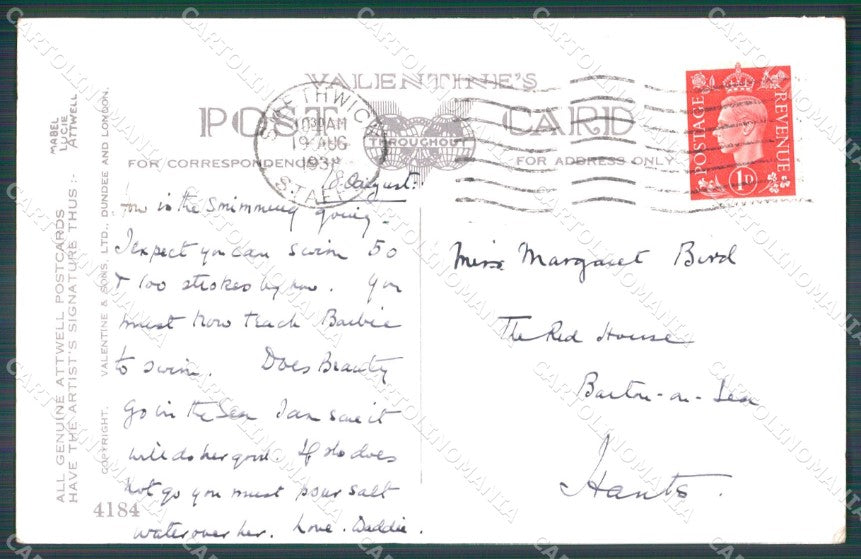 MABEL
LUCIE
ATTWELL
ALL GENUINE ATTWELL POSTCARDS
HAVE THE ARTIST'S SIGNATURE THUS :-
COPYRIGHT. VALENTINE & SONS, LTD., DUNDEE AND LONDON.
4184
VALENTINE'S
POST CARD
THROUGHOUT
FOR CORRESPONDENCE
FOR ADDRESS ONLY
SMETHWICK
10 30 AM
19 AUG
1938
STAFFS
POSTAGE REVENUE
1D
18 August.
How is the Swimming going.
I expect you can swim 50
& 100 strokes by now. You
must now teach Barbie
to swim. Does Beauty
go in the Sea I am sure it
will do her good. If she does
not go you must pour salt
water over her. Love. Daddie.
Miss Margaret Bird
The Red House
Barton-on-Sea
Hants.
CARTOLINOMANIA